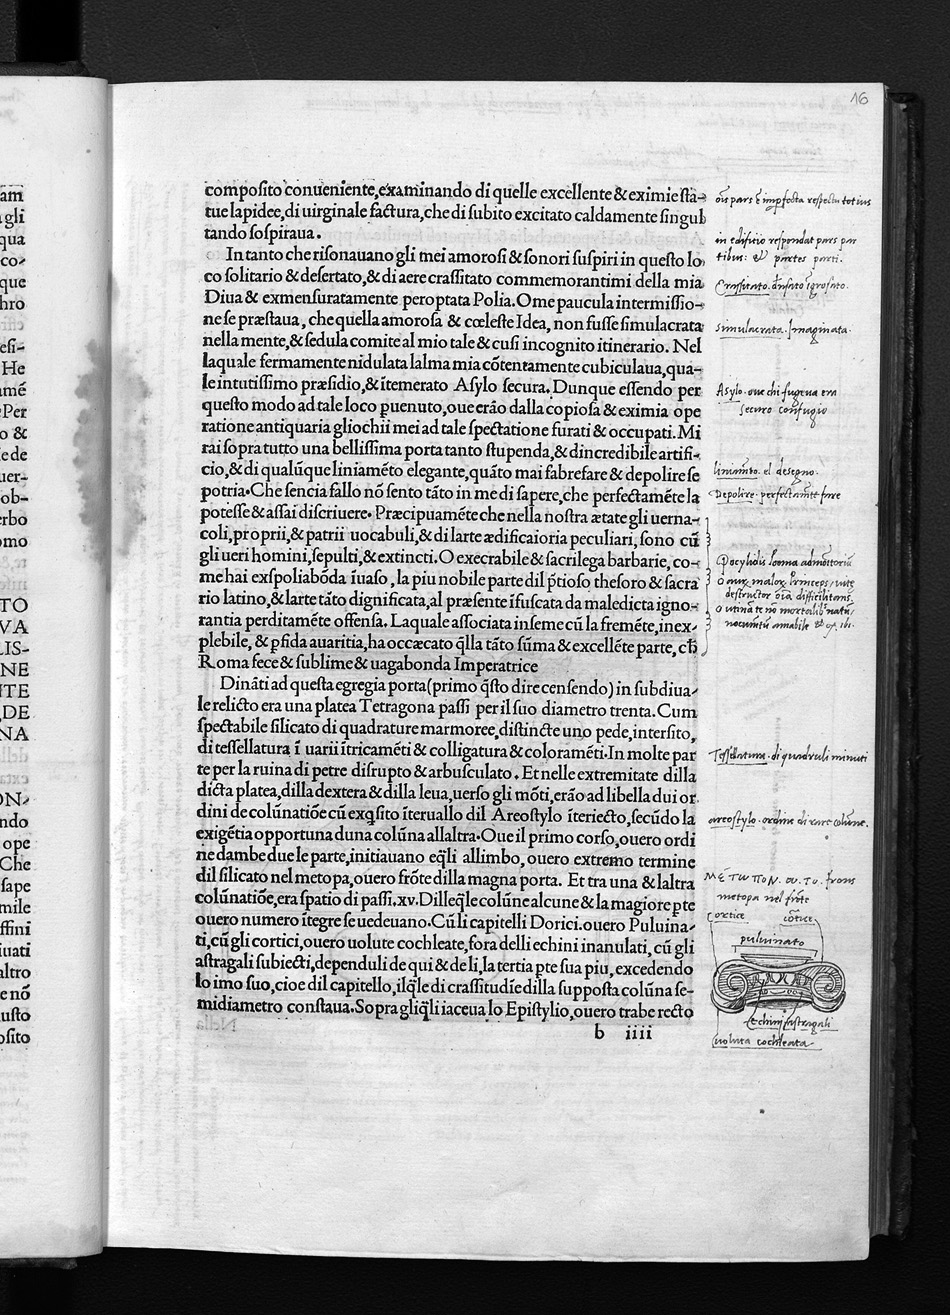 16
composito conueniente,examinando di quelle excellente & eximie sta-
tue lapidee,di uirginale factura,che di subito excitato caldamente singul
tando sospiraua.
In tanto che risonauano gli mei amorosi & sonori suspiri in questo lo-
co solitario & desertato,& di aere crassitato commemorantimi della mia
Diua & exmensuratamente peroptata Polia.Ome paucula intermissio-
ne se præstaua, che quella amorosa & cœleste Idea, non fusse simulacrata
nella mente,& sedula comite al mio tale & cusi incognito itinerario. Nel
laquale fermamente nidulata lalma mia cōtentamente cubiculaua,qua-
le intutissimo præsidio,& ītemerato Asylo secura. Dunque essendo per
questo modo ad tale loco ꝑuenuto,oue erāo dalla copiosa & eximia ope
ratione antiquaria gliochii mei ad tale spectatione furati & occupati. Mi
rai sopra tutto una bellissima porta tanto stupenda,& dincredibile artifi-
cio,& di qualūque liniamēto elegante,quāto mai fabrefare & depolire se
potria.Che sencia fallo nō sento tāto in me di sapere,che perfectamēte la
potesse & assai discriuere. Præcipuamēte che nella nostra ætate gli uerna-
coli,proprii,& patrii uocabuli,& di larte ædificaioria peculiari, sono cū
gli ueri homini,sepulti,& extincti.O execrabile & sacrilega barbarie, co-
me hai exspoliabōda īuaso , la piu nobile parte dil p̄tioso thesoro & sacra
rio latino,& larte tāto dignificata,al præsente īfuscata da maledicta igno-
rantia perditamēte offensa. Laquale associata inseme cū la fremēte,inex-
plebile, & ꝑfida auaritia,ha occæcato q̄lla tāto sūma & excellēte parte, ch̄
Roma fece & sublime & uagabonda Imperatrice
Dināti ad questa egregia porta(primo q̄sto dire censendo)in subdiua-
le relicto era una platea Tetragona passi per il suo diametro trenta. Cum
spectabile silicato di quadrature marmoree,distincte uno pede,intersito,
di tessellatura ī uarii ītricamēti & colligatura & coloramēti.In molte par
te per la ruina di petre disrupto & arbusculato . Et nelle extremitate dilla
dicta platea,dilla dextera & dilla leua,uerso gli mōti,erāo ad libella dui or
dini de colūnatiōe cū exq̄sito īteruallo dil Areostylo īteriecto,secūdo la
exigētia opportuna duna colūna allaltra.Oue il primo corso,ouero ordi
ne dambe due le parte,initiauano eq̄li allimbo, ouero extremo termine
dil silicato nel metopa,ouero frōte dilla magna porta. Et tra una & laltra
colūnatiōe,era spatio di passi.xv.Dilleq̄le colūne alcune & la magiore ꝑte
ouero numero ītegre se uedeuano.Cū li capitelli Dorici.ouero Puluina-
ti,cū gli cortici,ouero uolute cochleate,fora delli echini inanulati, cū gli
astragali subiecti,dependuli de qui & de li,la tertia pte sua piu, excedendo
lo imo suo,cioe dil capitello,ilq̄le di crassitudīe dilla supposta colūna se-
midiametro constaua.Sopra gliq̄li iaceua lo Epistylio,ouero trabe recto
b iiii
oīs pars ē imꝑfecta respectu totius
in edificio respondat pars par
tibus. & partes parti.
Crassitato.
simulacrata. Imaginata.
Asylo. oue chi fugeua era
securo confugio
liniamēto. el desegno.
Depolire. perfectamēte fare
Tessellatura. di quadruli minuti
areostylo. ordine di rare colūne.
frons
metopa nel frōte
cortice cortice
puluinato
Echini astragali
voluta cochleata
am
agli
qua
co-
que
hro
esi-
He
amē
Per
o &
e de
uer-
ob-
erbo
omo
TO
VA
LIS-
NE
NTE
,DE
NA
ON-
ndo
ope
Che
sape
mile
ffini
iuati
altro
e nō
usto
osito